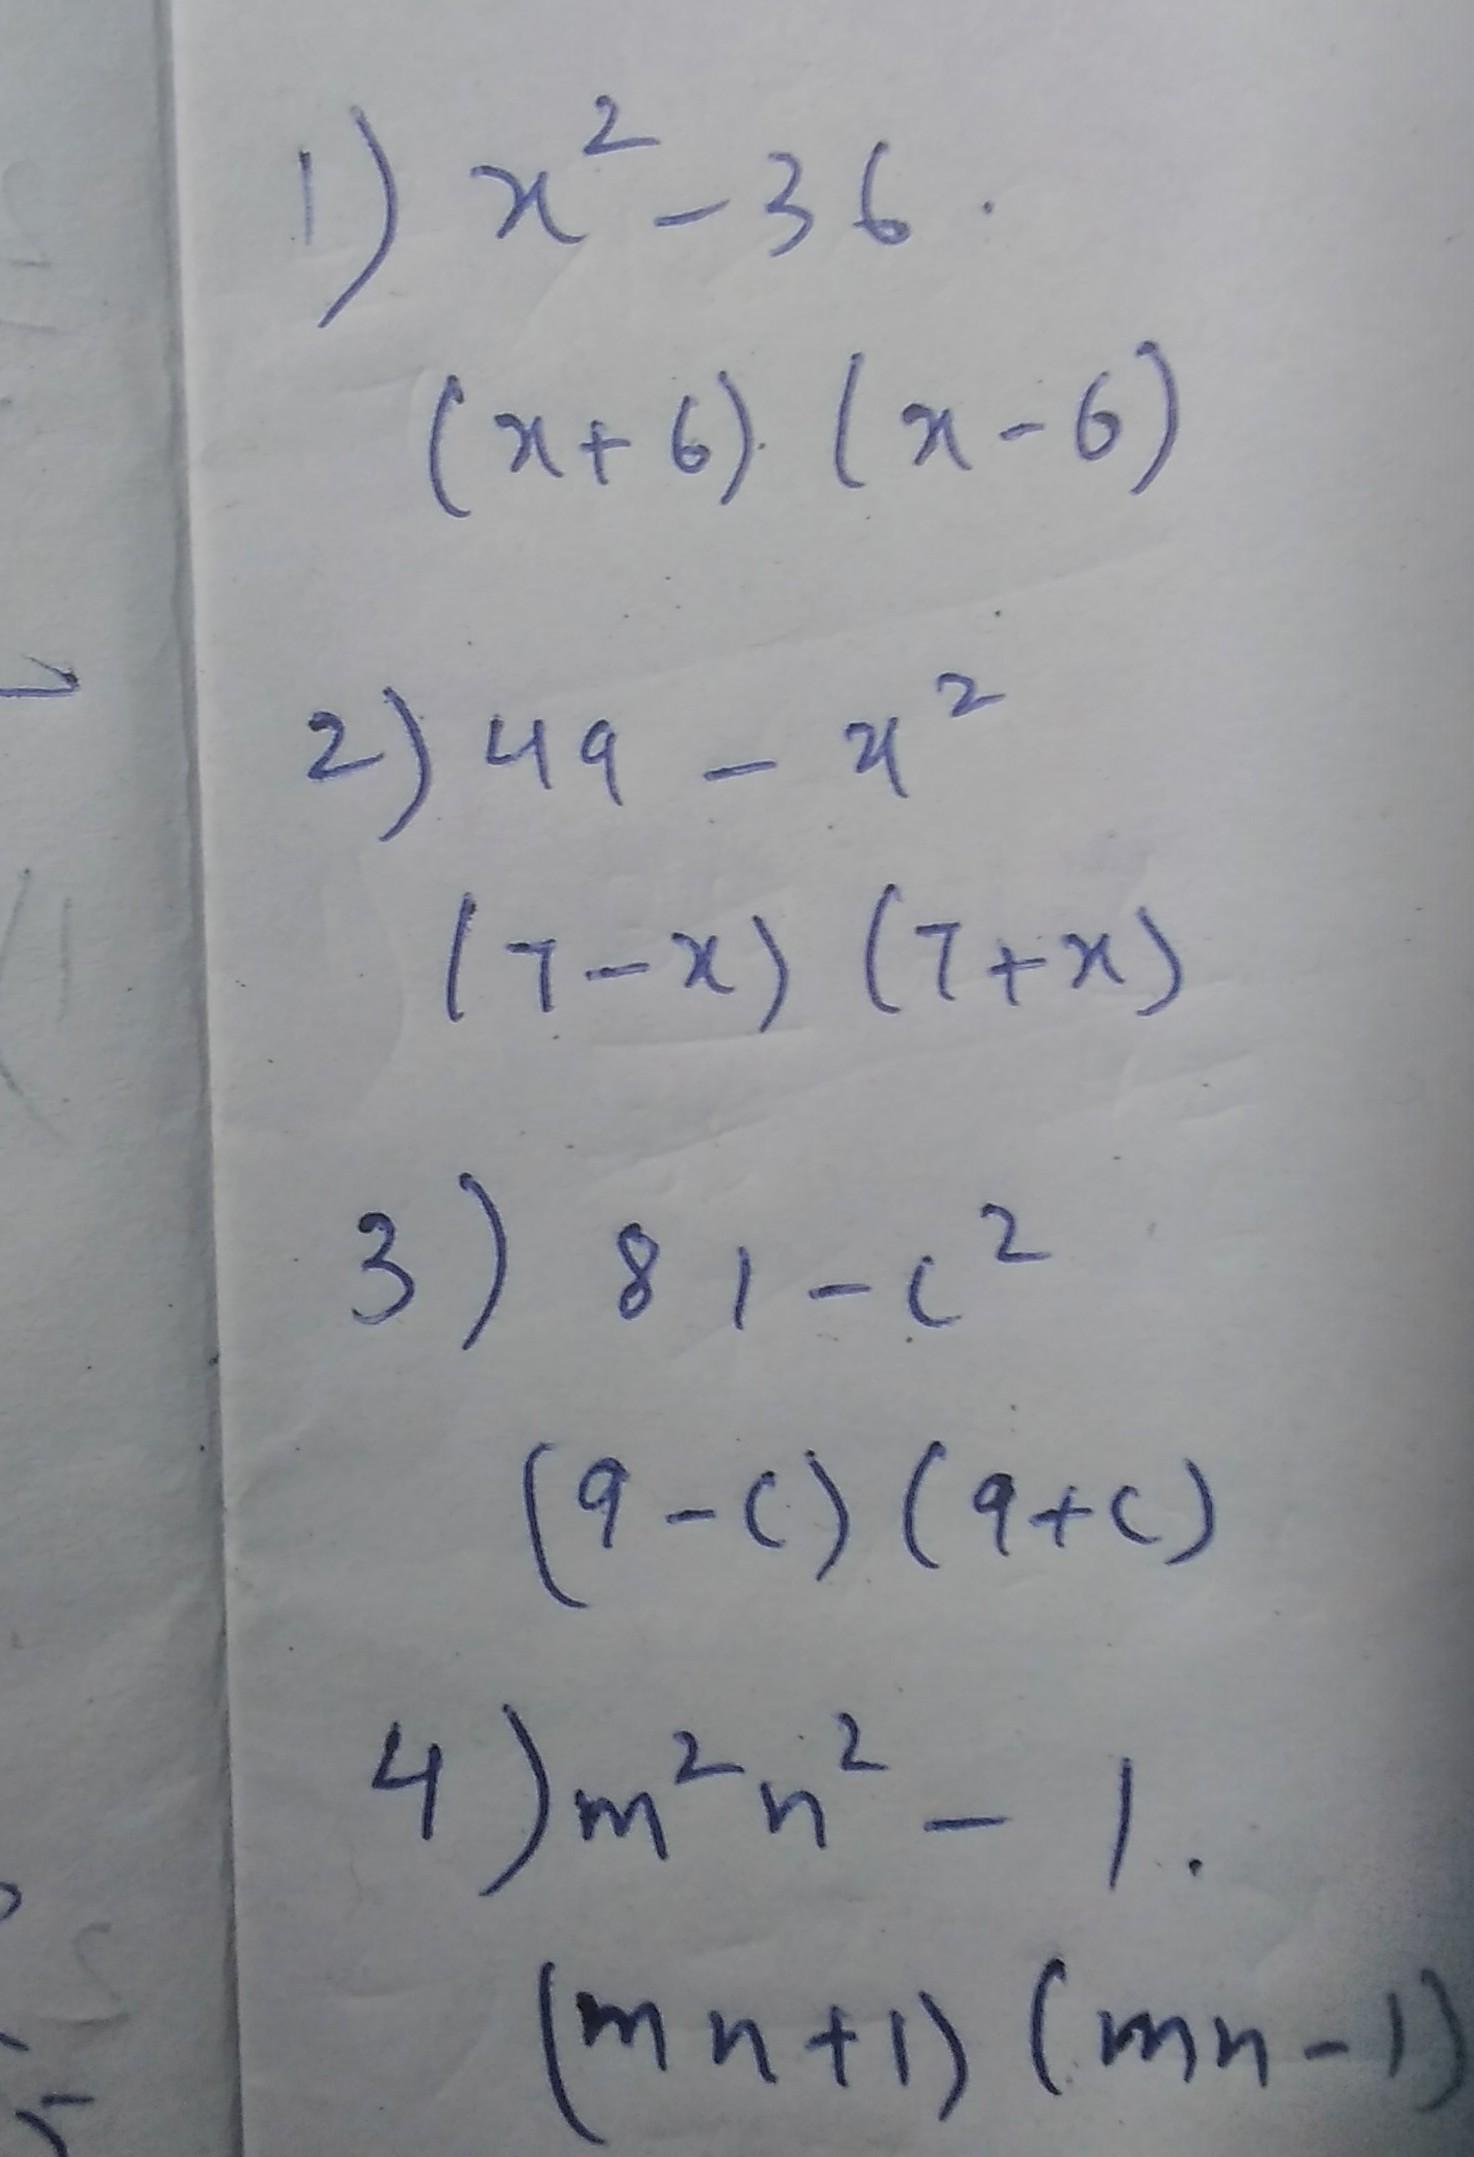 1) x² - 36.
(x+6) (x-6)
2) 49 - x²
(7-x) (7+x)
3) 81 - c²
(9-c) (9+c)
4) m²n² - 1.
(mn+1) (mn-1)